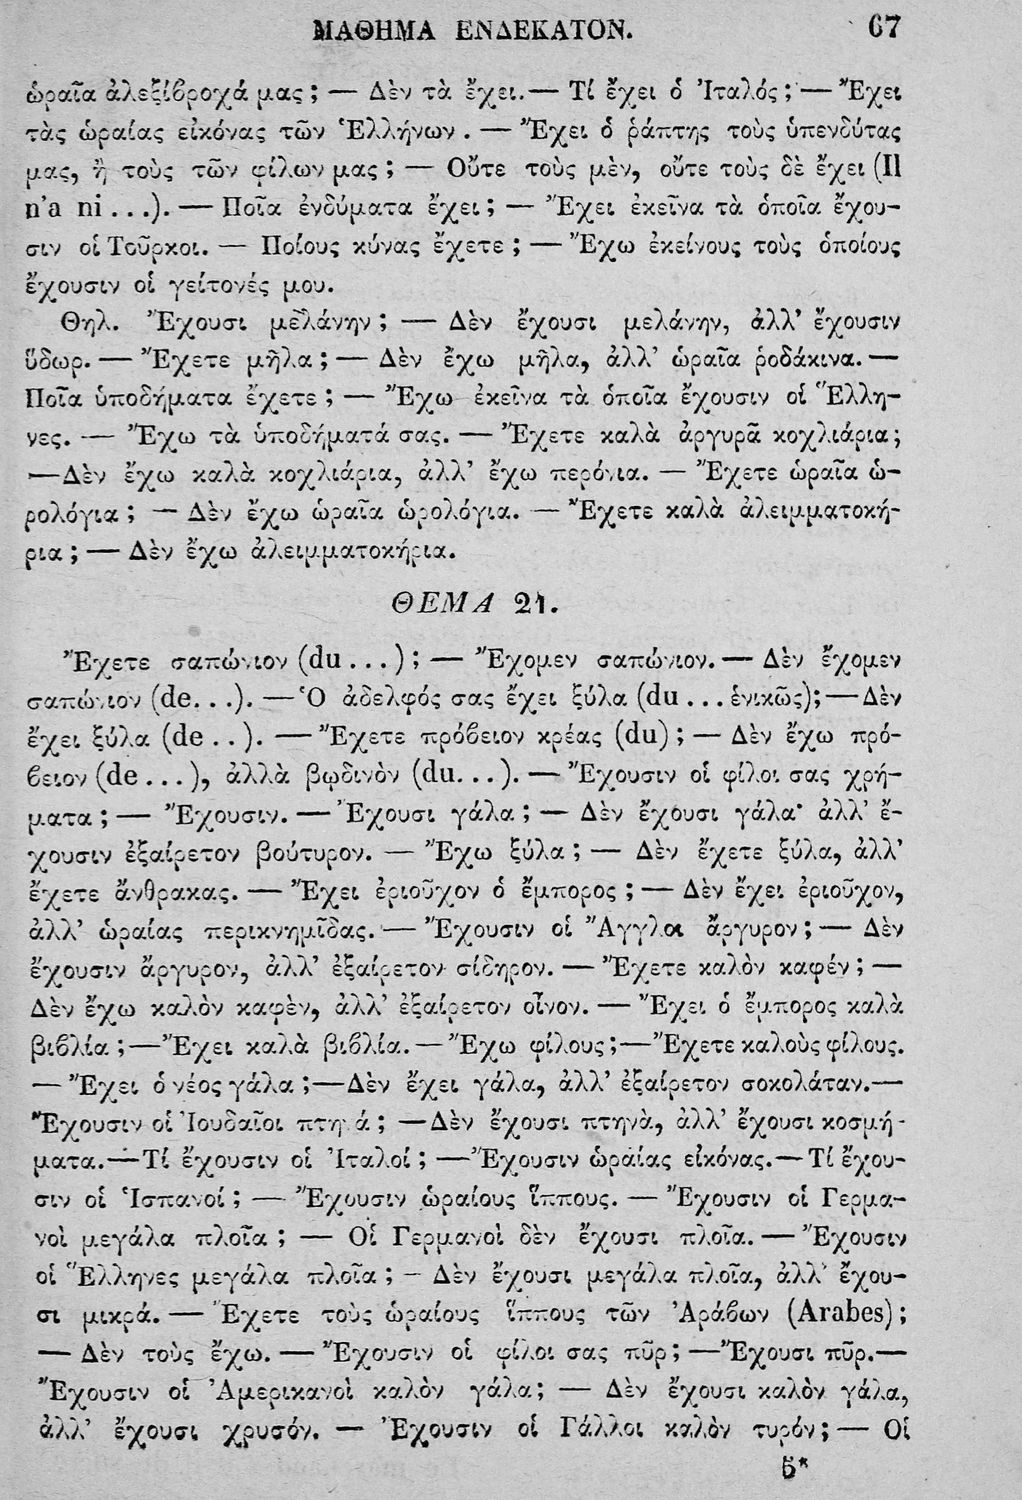 ΜΑΘΗΜΑ ΕΝΔΕΚΑΤΟΝ. 67
ὡραῖα ἀλεξίβροχά μας; — Δὲν τὰ ἔχει.— Τί ἔχει ὁ Ἰταλός; — Ἔχει
τὰς ὡραίας εἰκόνας τῶν Ἑλλήνων. — Ἔχει ὁ ῥάπτης τοὺς ὑπενδύτας
μας, ἢ τοὺς τῶν φίλων μας; — Οὔτε τοὺς μὲν, οὔτε τοὺς δὲ ἔχει (Il
n'a ni...). — Ποῖα ἐνδύματα ἔχει; — Ἔχει ἐκεῖνα τὰ ὁποῖα ἔχου-
σιν οἱ Τοῦρκοι. — Ποίους κύνας ἔχετε; — Ἔχω ἐκείνους τοὺς ὁποίους
ἔχουσιν οἱ γείτονές μου.
Θηλ. Ἔχουσι μελάνην; — Δὲν ἔχουσι μελάνην, ἀλλ' ἔχουσιν
ὕδωρ. — Ἔχετε μῆλα; — Δὲν ἔχω μῆλα, ἀλλ' ὡραῖα ῥοδάκινα. —
Ποῖα ὑποδήματα ἔχετε; — Ἔχω ἐκεῖνα τὰ ὁποῖα ἔχουσιν οἱ Ἕλλη-
νες. — Ἔχω τὰ ὑποδήματά σας. — Ἔχετε καλὰ ἀργυρᾶ κοχλιάρια;
—Δὲν ἔχω καλὰ κοχλιάρια, ἀλλ' ἔχω περόνια. — Ἔχετε ὡραῖα ὡ-
ρολόγια; — Δὲν ἔχω ὡραῖα ὡρολόγια. — Ἔχετε καλὰ ἀλειμματοκή-
ρια; — Δὲν ἔχω ἀλειμματοκήρια.
ΘΕΜΑ 21.
Ἔχετε σαπώνιον (du...); — Ἔχομεν σαπώνιον. — Δὲν ἔχομεν
σαπώνιον (de...). — Ὁ ἀδελφός σας ἔχει ξύλα (du...ἑνικῶς); — Δὲν
ἔχει ξύλα (de..). — Ἔχετε πρόβειον κρέας (du); — Δὲν ἔχω πρό-
βειον (de...), ἀλλὰ βῳδινὸν (du...). — Ἔχουσιν οἱ φίλοι σας χρή-
ματα; — Ἔχουσιν. — Ἔχουσι γάλα; — Δὲν ἔχουσι γάλα· ἀλλ' ἔ-
χουσιν ἐξαίρετον βούτυρον. — Ἔχω ξύλα; — Δὲν ἔχετε ξύλα, ἀλλ'
ἔχετε ἄνθρακας. — Ἔχει ἐριοῦχον ὁ ἔμπορος; — Δὲν ἔχει ἐριοῦχον,
ἀλλ' ὡραίας περικνημῖδας. — Ἔχουσιν οἱ Ἄγγλοι ἄργυρον; — Δὲν
ἔχουσιν ἄργυρον, ἀλλ' ἐξαίρετον σίδηρον. — Ἔχετε καλὸν καφέν; —
Δὲν ἔχω καλὸν καφὲν, ἀλλ' ἐξαίρετον οἶνον. — Ἔχει ὁ ἔμπορος καλὰ
βιβλία; — Ἔχει καλὰ βιβλία. — Ἔχω φίλους; — Ἔχετε καλοὺς φίλους.
— Ἔχει ὁ νέος γάλα; — Δὲν ἔχει γάλα, ἀλλ' ἐξαίρετον σοκολάταν.—
Ἔχουσιν οἱ Ἰουδαῖοι πτηνά; — Δὲν ἔχουσι πτηνὰ, ἀλλ' ἔχουσι κοσμή-
ματα.—Τί ἔχουσιν οἱ Ἰταλοί; — Ἔχουσιν ὡραίας εἰκόνας.— Τί ἔχου-
σιν οἱ Ἱσπανοί; — Ἔχουσιν ὡραίους ἵππους. — Ἔχουσιν οἱ Γερμα-
νοὶ μεγάλα πλοῖα; — Οἱ Γερμανοὶ δὲν ἔχουσι πλοῖα. — Ἔχουσιν
οἱ Ἕλληνες μεγάλα πλοῖα; — Δὲν ἔχουσι μεγάλα πλοῖα, ἀλλ' ἔχου-
σι μικρά. — Ἔχετε τοὺς ὡραίους ἵππους τῶν Ἀράβων (Arabes);
— Δὲν τοὺς ἔχω. — Ἔχουσιν οἱ φίλοι σας πῦρ; — Ἔχουσι πῦρ.—
Ἔχουσιν οἱ Ἀμερικανοὶ καλὸν γάλα; — Δὲν ἔχουσι καλὸν γάλα,
ἀλλ' ἔχουσι χρυσόν. — Ἔχουσιν οἱ Γάλλοι καλὸν τυρόν; — Οἱ
5*